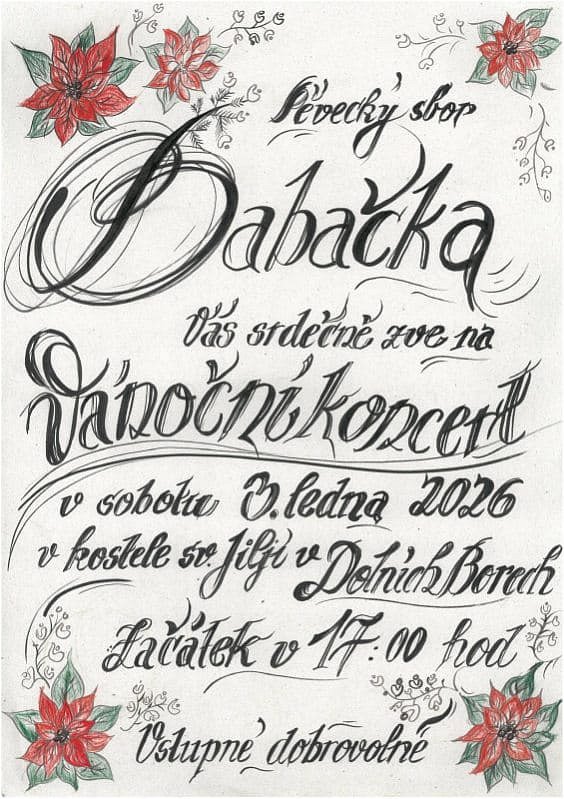 Pěvecký sbor
Babačka
Vás srdečně zve na
Vánoční koncert
v sobotu 3. ledna 2026
v kostele sv. Jiljí v Dolních Borech
Začátek v 17:00 hod
Vstupné dobrovolné